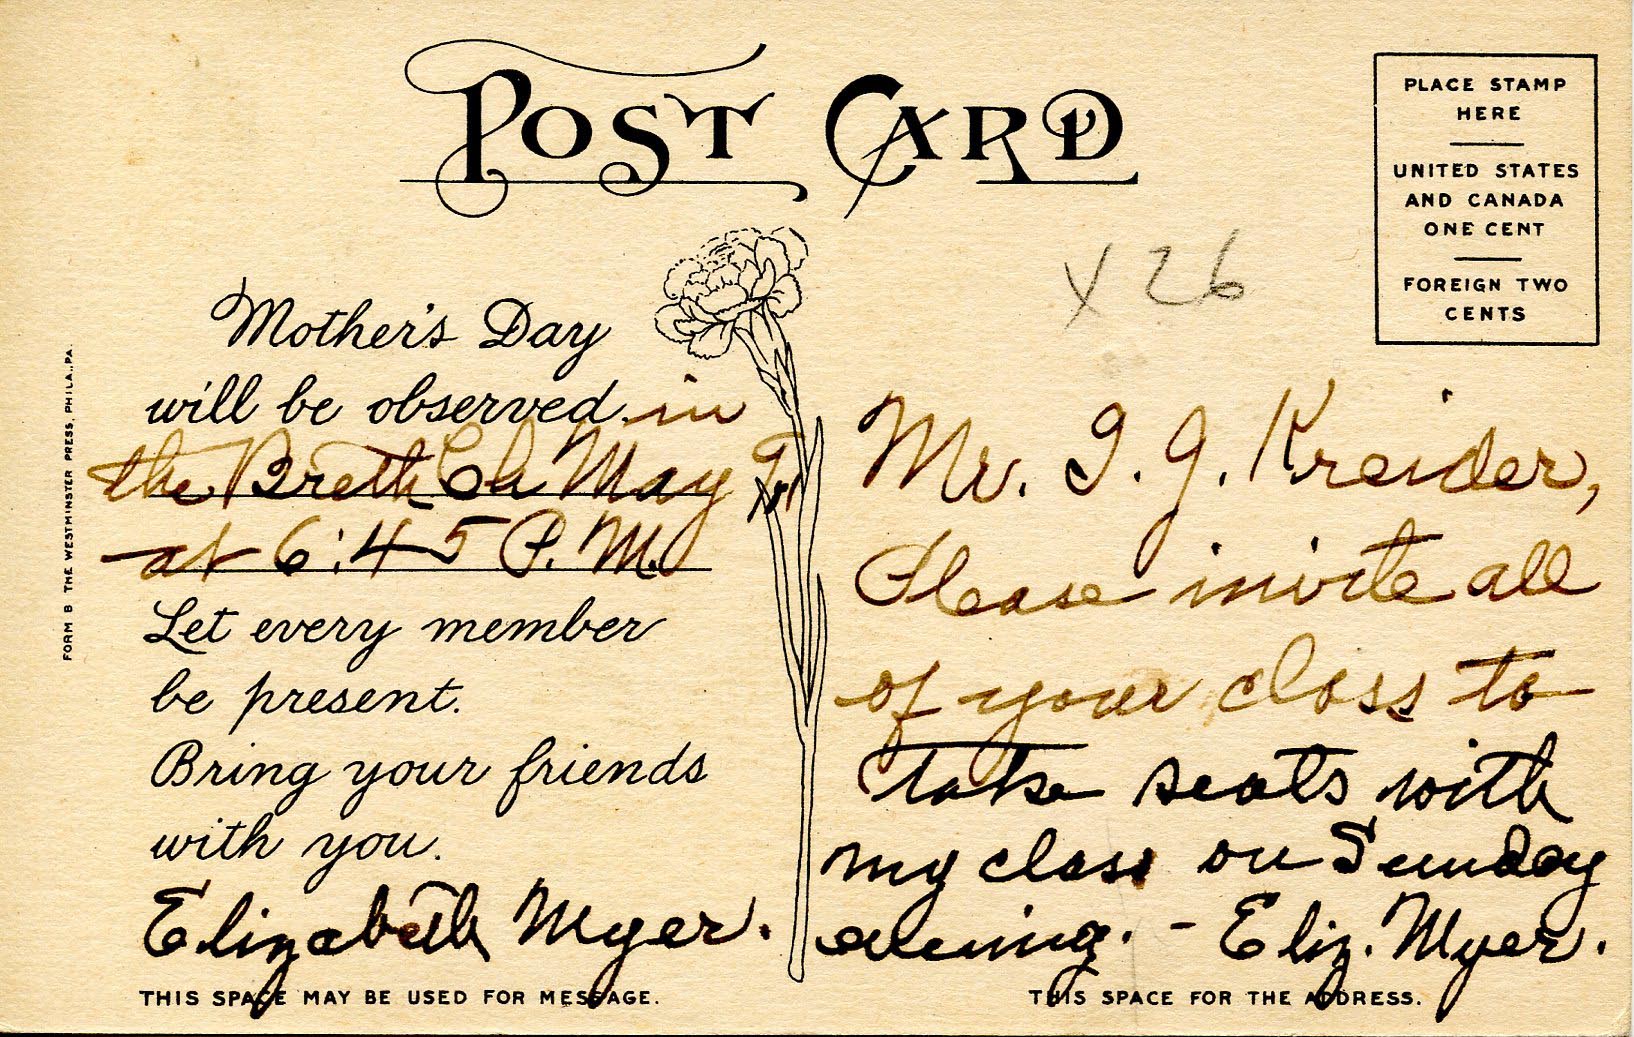 POST CARD
PLACE STAMP
HERE
UNITED STATES
AND CANADA
ONE CENT
FOREIGN TWO
CENTS
X 26
Mother's Day
will be observed in
the Breth Ch May
at 6:45 P.M.
Let every member
be present.
Bring your friends
with you.
Elizabeth Myer.
THIS SPACE MAY BE USED FOR MESSAGE.
FORM B THE WESTMINSTER PRESS, PHILA., PA.
Mr. I. J. Kreider,
Please invite all
of your class to
take seats with
my class on Sunday
evening. - Eliz. Myer.
THIS SPACE FOR THE ADDRESS.